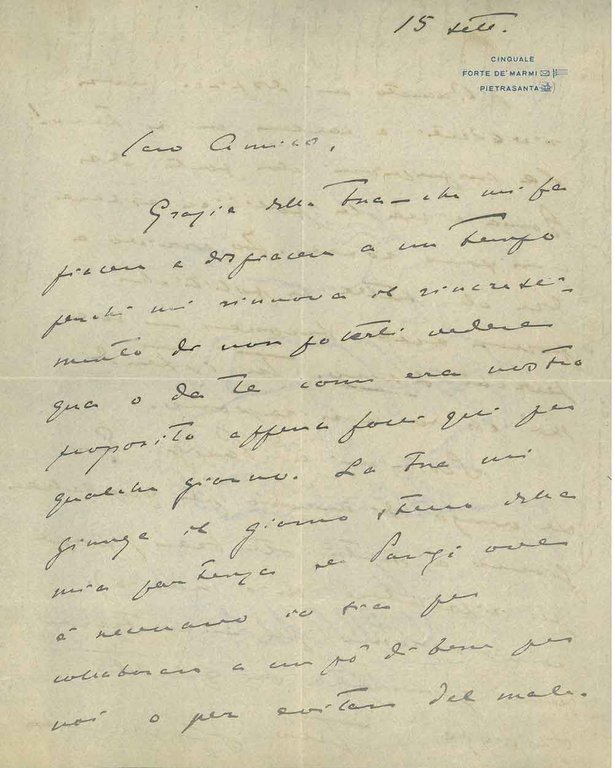 15 sett.
CINQUALE
FORTE DE' MARMI
PIETRASANTA
Caro Amico,
Grazie della tua – che mi fa
piacere e dispiacere a un tempo
perché mi rinnova il rincresci-
mento di non poterti vedere
qua o da te come era nostro
proposito appena fossi qui per
qualche giorno. La tua mi
giunge il giorno stesso della
mia partenza per Parigi ove
è necessario io sia per
collaborare a un pò di bene per
noi o per evitare del male.